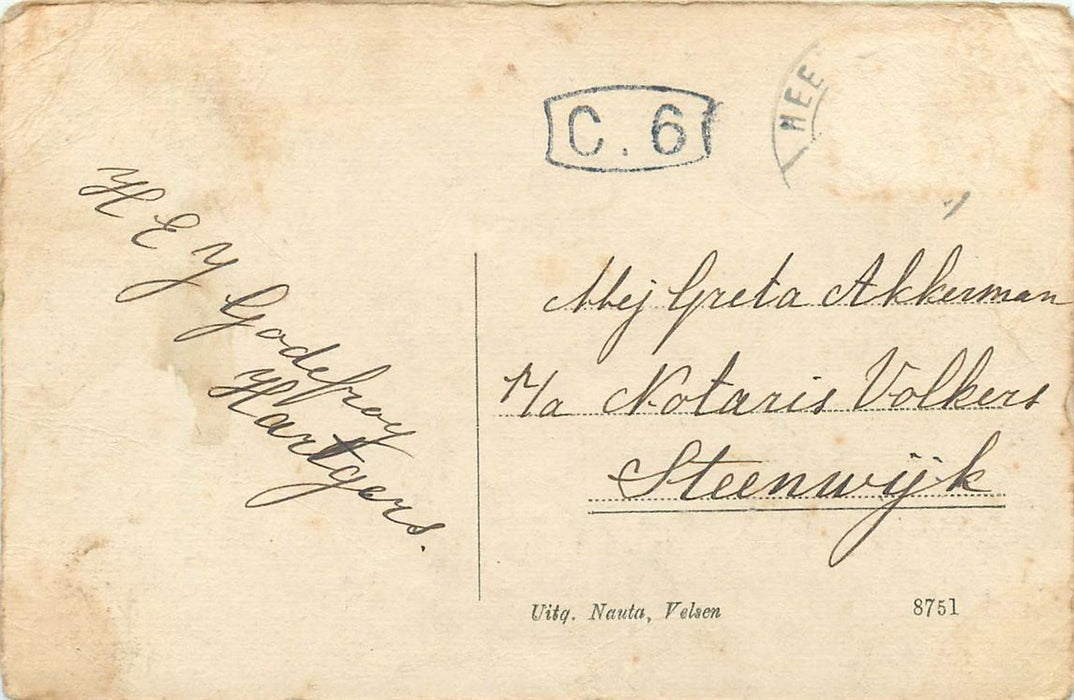 C. 6
HEE
H E Y Godefroy
Hartgers.
Mej Greta Akkerman
p/a Notaris Volkers
Steenwijk
Uitg. Nauta, Velsen
8751